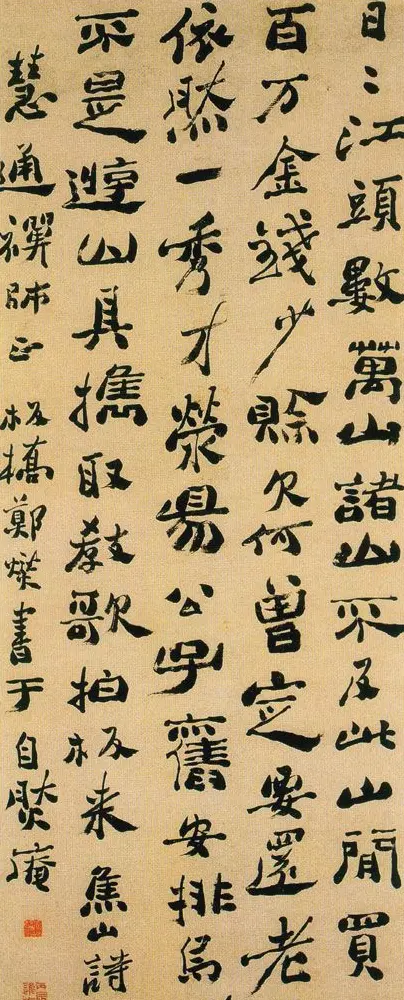 日〻江頭數萬山諸山不及此山閒買
百万金錢少賒欠何曾定要還老
依然一秀才滎陽公子舊安排烏
不是遊山具攜取教歌拍板来焦山詩
慧通禪師正 板橋鄭燮書于自然庵